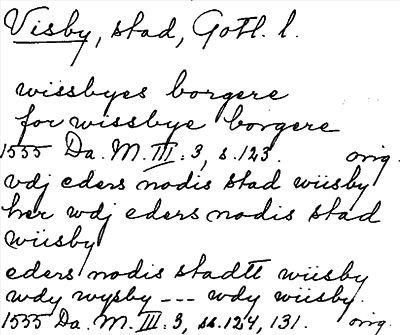 Visby, stad, Gotl. l.
wissbyes borgere
for wissbye borgere
1555 Da. M. III: 3, s. 123. orig.
vdj eders nodis stad wiisby
her wdj eders nodis stad
wiisby
eders nodis stadtt wiisby
wdy wysby --- wdy wiisby.
1555 Da. M. III: 3, ss. 124, 131. orig.